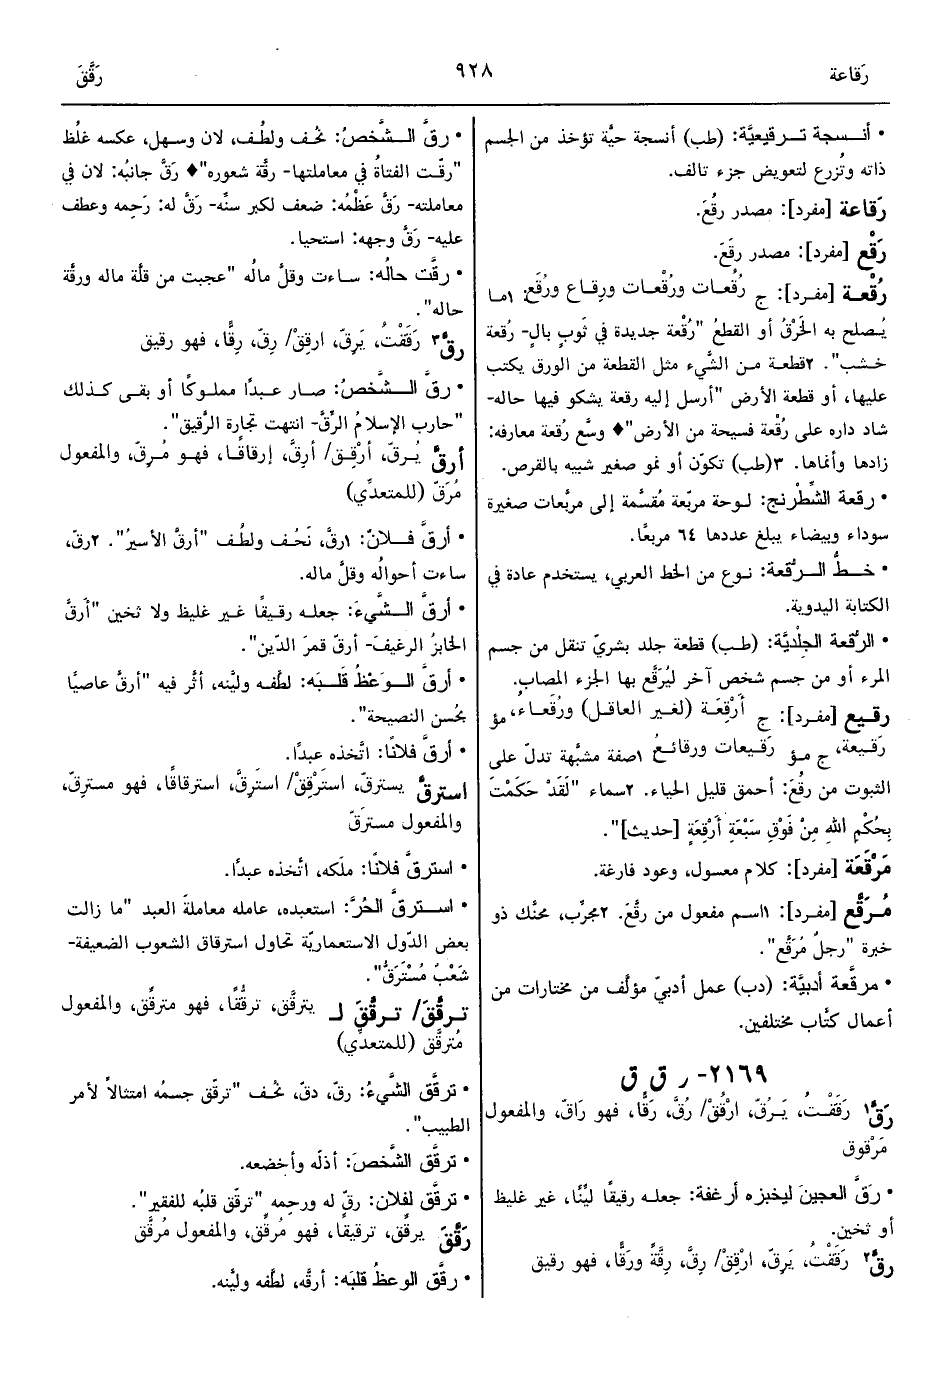 رَقاعة
٩٢٨
رَقَّقَ
• أنسجة ترقيعيَّة: (طب) أنسجة حيَّة تؤخذ من الجسم
ذاته وتُزرع لتعويض جزء تالف.
رَقاعة [مفرد]: مصدر رقُعَ.
رَقْع [مفرد]: مصدر رقَعَ.
رُقْعة [مفرد]: ج رُقُعات ورُقْعات ورِقاع ورُقَع: ١ما
يُصلح به الخَرْقُ أو القطعُ "رُقْعة جديدة في ثَوبٍ بالٍ- رُقعة
خشب". ٢قطعة من الشَّيء مثل القطعة من الورق يكتب
عليها، أو قطعة الأرض "أرسل إليه رقعة يشكو فيها حاله-
شاد داره على رُقْعة فسيحة من الأرض" ♦ وسَّع رُقعة معارفه:
زادها وأنماها. ٣(طب) تكوّن أو نمو صغير شبيه بالقرص.
• رقعة الشِّطْرنج: لوحة مربّعة مُقسَّمة إلى مربَّعات صغيرة
سوداء وبيضاء يبلغ عددها ٦٤ مربعًا.
• خطُّ الرُّقعة: نوع من الخط العربي، يستخدم عادة في
الكتابة اليدوية.
• الرُّقعة الجِلْديَّة: (طب) قطعة جلد بشريّ تنقل من جسم
المرء أو من جسم شخص آخر ليُرَقَّع بها الجزء المصاب.
رقيع [مفرد]: ج أَرْقِعَة (لغير العاقل) ورُقَعاءُ، مؤ
رَقيعة، ج مؤ رَقيعات ورقائعُ ١صفة مشبَّهة تدلّ على
الثبوت من رقُعَ: أحمق قليل الحياء. ٢سماء "لَقَدْ حَكَمْتَ
بِحُكْمِ اللهِ مِنْ فَوْقِ سَبْعَةِ أَرْقِعَةٍ [حديث]".
مَرْقَعَة [مفرد]: كلام معسول، وعود فارغة.
مُرَقَّع [مفرد]: ١اسم مفعول من رقَّعَ. ٢مجرِّب، محنَّك ذو
خبرة "رجلٌ مُرَقَّع".
• مرقَّعة أدبيَّة: (دب) عمل أدبيّ مؤلَّف من مختارات من
أعمال كتَّاب مختلفين.
٢١٦٩- ر ق ق
رَقَّ١ رَقَقْتُ، يَرُقّ، ارْقُقْ/ رُقَّ، رَقًّا، فهو رَاقّ، والمفعول
مَرْقوق
• رَقَّ العجينَ ليخبزه أرغفة: جعله رقيقًا ليّنًا، غير غليظ
أو ثخين.
رقَّ٢ رَقَقْتُ، يَرِقّ، ارْقِقْ/ رِقَّ، رِقَّةً ورَقًّا، فهو رقيق
• رقَّ الشَّخصُ: نحُف ولطُف، لان وسهل، عكسه غلُظ
"رقّت الفتاةُ في معاملتها- رقَّة شعوره" ♦ رَقَّ جانبُه: لان في
معاملته- رَقَّ عَظْمُه: ضعف لكبر سنِّه- رَقَّ له: رَحِمه وعطف
عليه- رَقَّ وجهه: استحيا.
• رقَّت حالُه: ساءت وقلَّ مالُه "عجبت من قلَّة ماله ورقَّة
حاله".
رقَّ٣ رَقَقْتُ، يَرِقّ، ارقِقْ/ رِقّ، رِقًّا، فهو رقيق
• رقَّ الشَّخصُ: صار عبدًا مملوكًا أو بقى كذلك
"حارب الإسلامُ الرِّقَّ- انتهت تجارة الرَّقيق".
أرقَّ يُرِقّ، أرْقِقْ/ أرِقَّ، إرقاقًا، فهو مُرِقّ، والمفعول
مُرَقّ (للمتعدِّي)
• أرقَّ فلانٌ: ١رقَّ، نَحُف ولطُف "أرقَّ الأسيرُ". ٢رقّ،
ساءت أحوالُه وقلَّ ماله.
• أرقَّ الشَّيءَ: جعله رقيقًا غير غليظ ولا ثخين "أرَقَّ
الخبازُ الرغيفَ- أرقّ قمرَ الدّين".
• أرقَّ الوَعْظُ قَلْبَه: لطَّفه وليَّنه، أثَّر فيه "أرقَّ عاصيًا
بحُسن النصيحة".
• أرقَّ فلانًا: اتَّخذه عبدًا.
استرقَّ يسترقّ، استَرْقِقْ/ استَرِقَّ، استرقاقًا، فهو مسترِقّ،
والمفعول مسترَقّ
• استرقَّ فلانًا: ملَكه، اتَّخذه عبدًا.
• استرقَّ الحُرَّ: استعبده، عامله معاملةَ العبد "ما زالت
بعض الدّول الاستعماريّة تحاول استرقاق الشعوب الضعيفة-
شَعْبٌ مُسْتَرَقٌّ".
ترقَّقَ/ ترقَّقَ لـ يترقَّق، ترقُّقًا، فهو مترقِّق، والمفعول
مُترقَّق (للمتعدِّي)
• ترقَّق الشَّيءُ: رقَّ، دقّ، نحُف "ترقَّق جسمُه امتثالاً لأمر
الطبيب".
• ترقَّق الشَّخصَ: أذلّه وأخضعه.
• ترقَّق لفلان: رقَّ له ورحِمه "ترقَّق قلبُه للفقير".
رَقَّقَ يرقِّق، ترقيقًا، فهو مُرقِّق، والمفعول مُرقَّق
• رقَّق الوعظُ قلبَه: أرقَّه، لطَّفه وليَّنه.